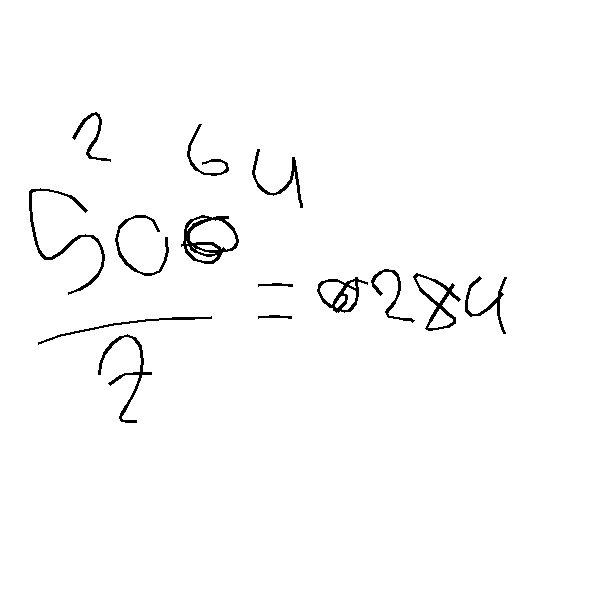 2 6 4
500
= 0284
7